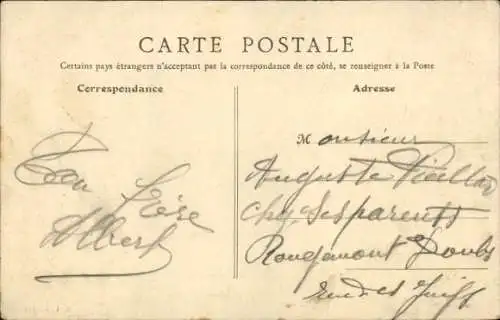 CARTE POSTALE
Certains pays étrangers n'acceptant pas la correspondance de ce côté, se renseigner à la Poste
Correspondance
Adresse
Ton frère
Albert
Monsieur
Auguste Vieillar
chez ses parents
Rougemont Doubs
rue des Juifs